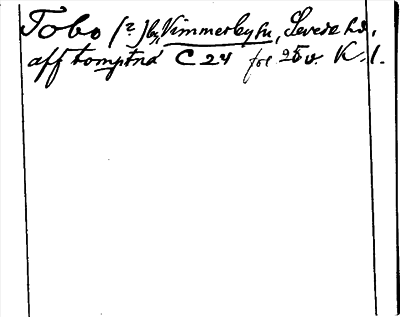 Tobo (?) by, Vimmerby sn, Sevede hd,
aff tomptna C 24 fol 25 v. K. 1.